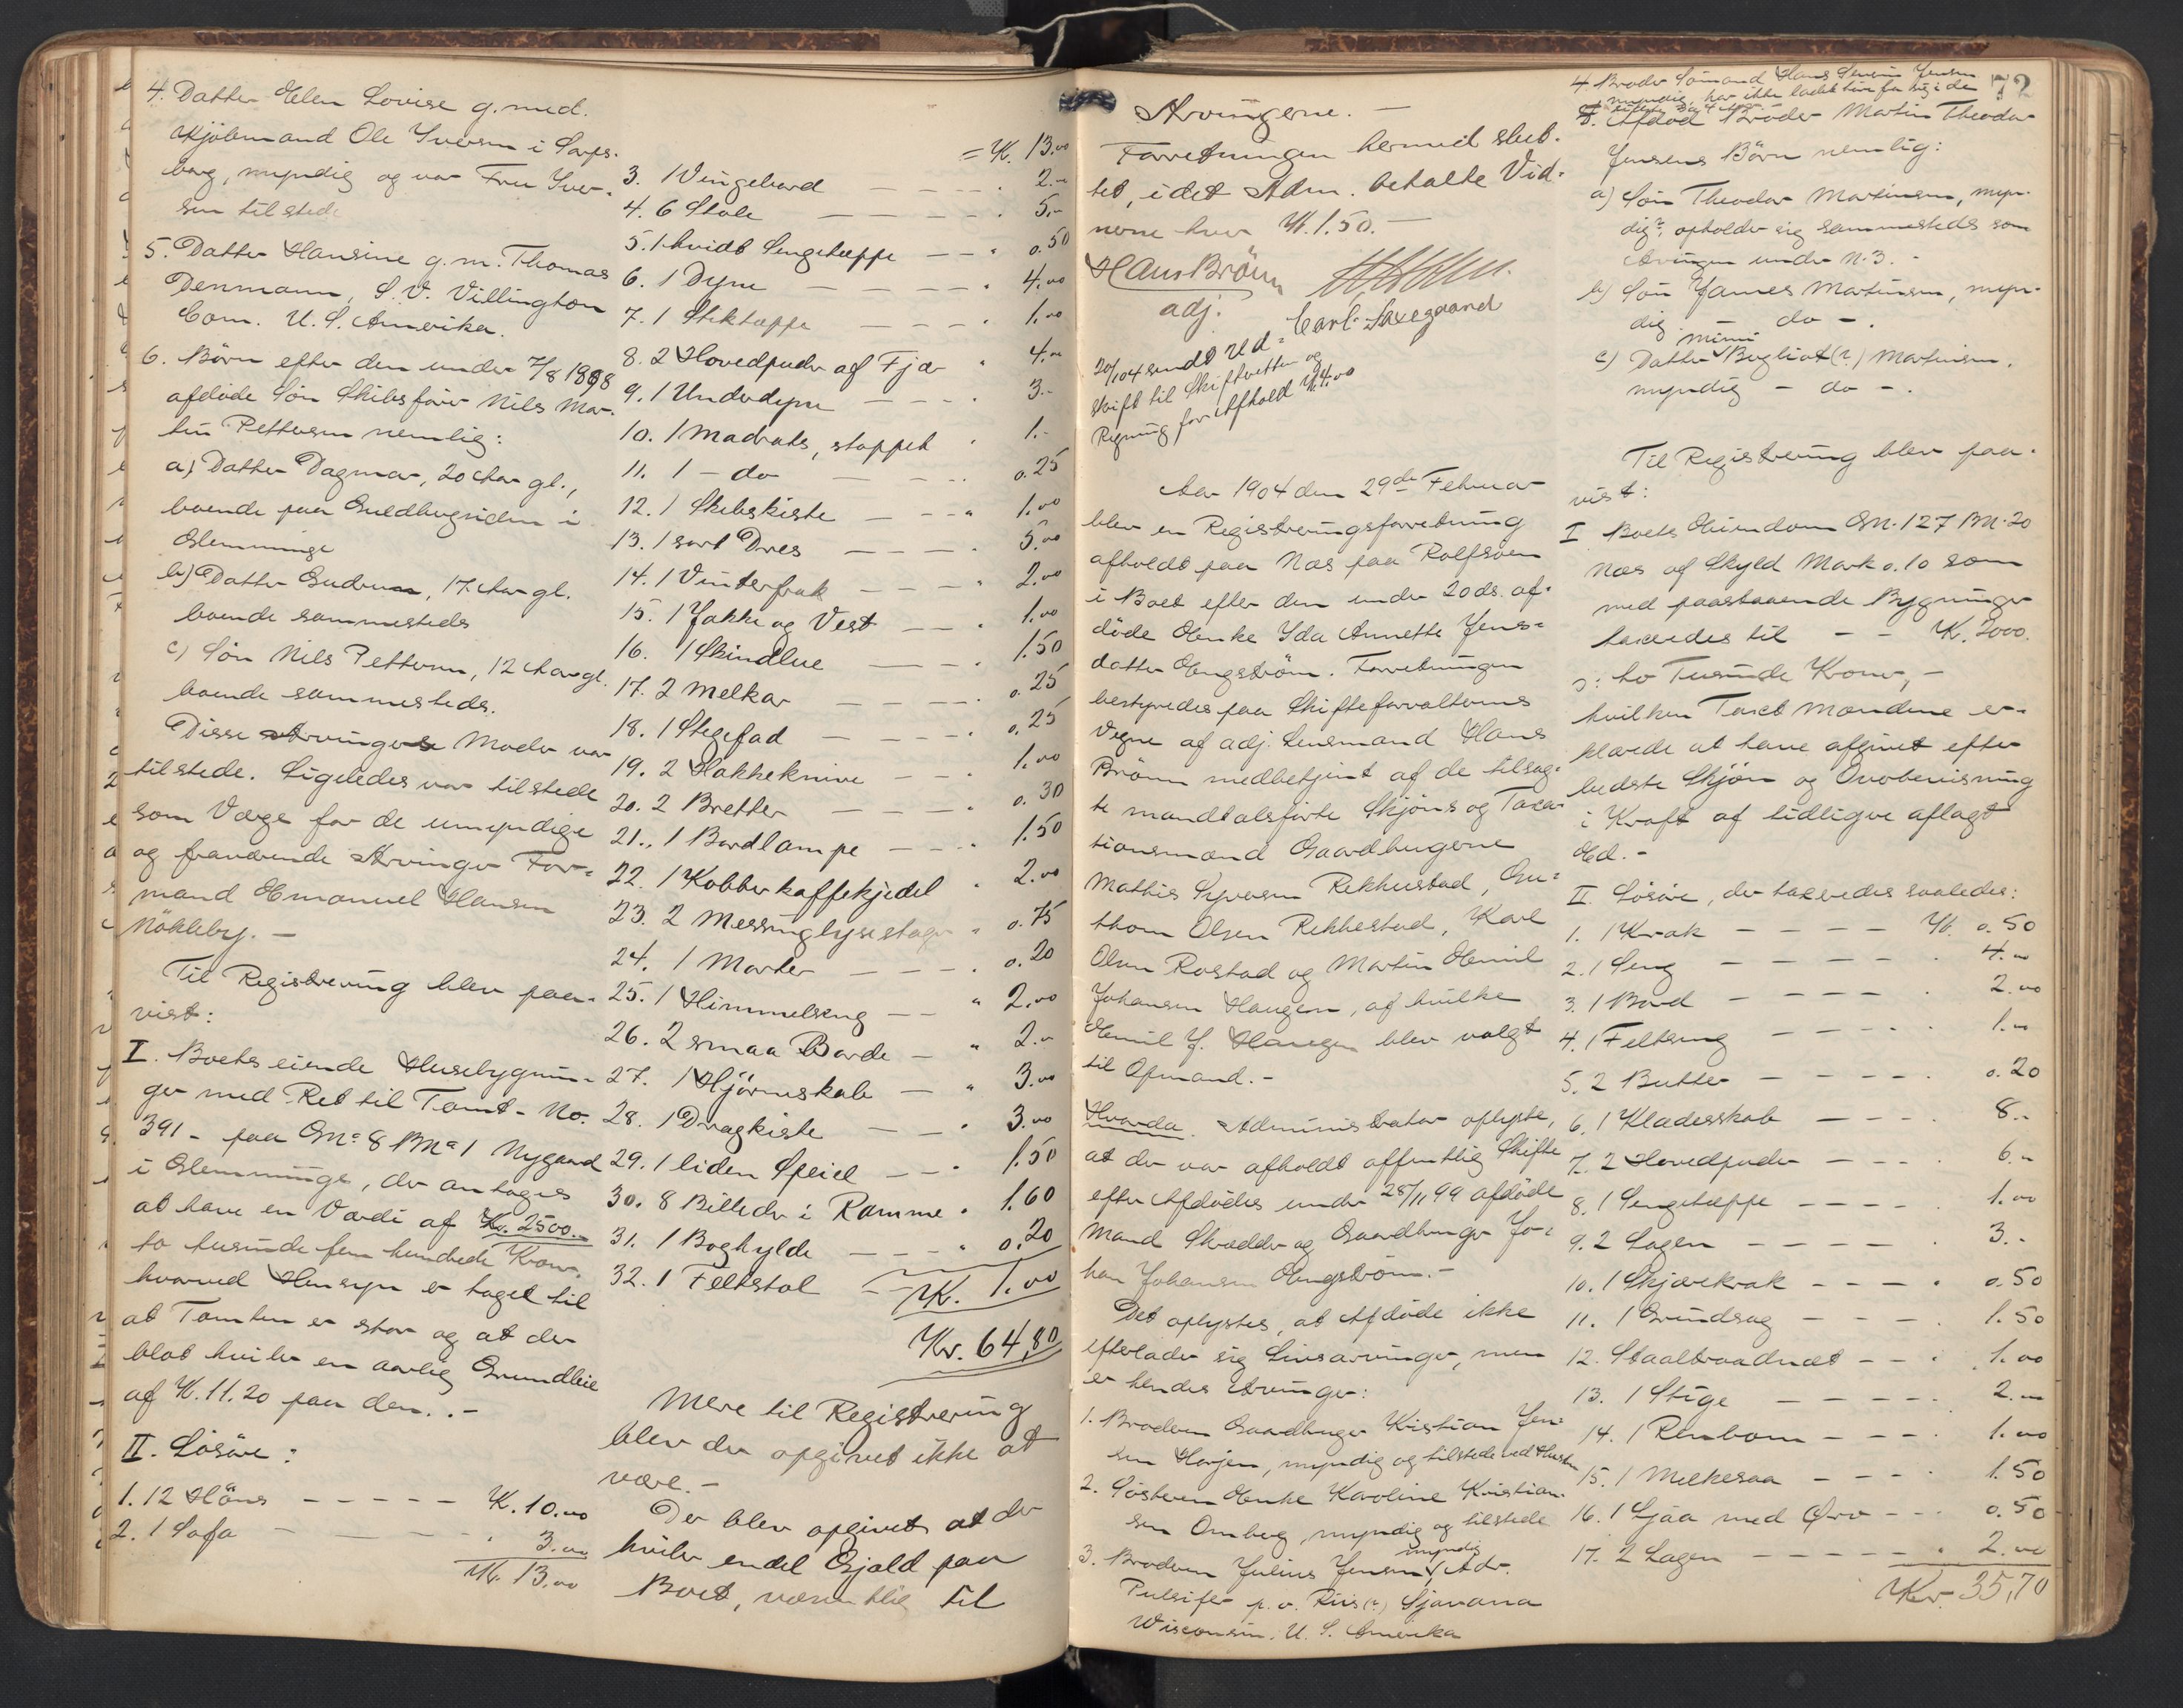 4. Datter Elen Lovise g. med.
Kjøbmand Ole Iversen i Sarps-
borg, myndig og var Fru Iver-
sen tilstede
5. Datter Hansine g. m. Thomas
Denmann, S. V. Villington
Com. U. S. Amerika.
6. Børn efter den under 7/8 1898
afdøde Søn Skibsfører Nils Mar-
tin Pettersen nemlig:
a) Datter Dagmar, 20 Aar gl.,
boende paa Guldbergsiden i
Glemminge
b) Datter Gudrun, 17 Aar gl.
boende sammesteds
c) Søn Nils Pettersen, 12 Aar gl.
boende sammesteds.
Disse Arvingers Moder var
tilstede. Ligeledes var tilstede
som Værge for de umyndige
og fraværende Arvinger For-
mand Emanuel Hansen
Nøkleby. -
Til Registrering blev paa-
vist:
I. Boets eiende Husebygnin-
ger med Ret til Tomt- No.
391 - paa Gno 8 Bno 1 Nygaard
i Glemminge, der antages
at have en Værdi af Kr. 2500.-
to tusinde fem hundrede Kroner,
hvorved Hensyn er taget til
at Tomten er stor og at der
blot hviler en aarlig Grundleie
af K. 11.20 paa den. . -
II. Løsøre:
1. 12 Høns - - - - - K. 10.00
2. 1 Sofa - - - - " 3.00
Kr. 13.00
= K. 13.00
3. 1 Vingebord - - - - . 2.-
4. 6 Stole - - - - - . 5.-
5. 1 hvidt Sengetæppe - - " 0.50
6. 1 Dyne - - - - - . 4.00
7. 1 Stiktæppe - - - . 1.00
8. 2 Hovedpuder af Fjær " 4.00
9. 1 Underdyne - - - . 3.-
10. 1 Madrats, stoppet . 1.-
11. 1 - do - - .. 0.25
12. 1 Skibskiste - - - " 1.00
13. 1 sort Dres - - - . 5.00
14. 1 Vinterfrak - - - " 2.00
15. 1 Jakke og Vest - - . 1.00
16. 1 Skindlue - - - " 1.50
17. 2 Melkar - - - - . 0.25
18. 1 Stegefad - - - - . 0.25
19. 2 Hakkeknive - - . 1.00
20. 2 Bretter - - - - . 0.30
21. 1 Bordlampe - - - . 1.50
22. 1 Kobberkaffekjedel . 2.00
23. 2 Messinglysestager " 0.75
24. 1 Morter - - - . 0.20
25. 1 Himmelseng - - " 2.00
26. 2 smaa Borde - " 2.-
27. 1 Hjørneskab - " 3.00
28. 1 Dragkiste - - " 3.00
29. 1 liden Speiel - - . 1.50
30. 8 Billeder i Ramme . 1.60
31. 1 Boghylde - - - " 0.20
32. 1 Feltstol - - K. 1.00
Kr. 64,80
Mere til Registrering
blev der opgivet ikke at
være. -
Der blev opgivet at der
hviler endel Gjæld paa
Boet, væsentlig til
Arvingerne. -
Forretningen hermed slut-
tet, idet Adm. betalte Vid-
nerne hver K. 1.50. -
Hans Brønn
adj.
Carl Saxegaard
20/1 04 sendt Ud-
skrift til Skifteretten og
Regning for Afhold K. 4.00
Aar 1904 den 29de Februar
blev en Registreringsforretning
afholdt paa Næs paa Rolfsøen
i Boet efter den under 20 ds. af-
døde Enke Ida Annette Jens-
datter Engstrøm. Forretningen
bestyredes paa Skifteforvalterens
Vegne af adj. Lensmand Hans
Brønn medbetjent af de tilsag-
te mandtalsførte Skjøns og Taxa-
tionsmænd Gaardbrugerne
Mathis Syversen Rekkestad, Gu-
thorm Olsen Rekkestad, Karl
Olsen Rostad og Martin Emil
Johansen Haugen, af hvilke
Emil J. Haugen blev valgt
til Opmand. -
Hvorda. Administrator oplyste,
at der var afholdt offentlig Skifte
efter Afdødes under 28/11 99 afdøde
Mand Skrædder og Gaardbruger Jo-
han Johansen Engstrøm. -
Det oplystes, at Afdøde ikke
efterlader sig Livsarvinger, men
er hendes Arvinger:
1. Broderen Gaardbruger Kristian Jen-
sen Horjen, myndig og tilstede ved Hustru
2. Søsteren Enke Karoline Kristian-
sen Omberg, myndig og tilstede
3. Broderen Julius Jensen, myndig Adr.
Pulsifer p. o. Riis (?) Sjavana
Wisconsin. U. S. Amerika
72
4. Broder Sømand Hans Severin Jensen
myndig, har ikke ladet høre fra sig i de
sidste 3 a 4 Aar
5. Afdød Broder Martin Theodor
Jensens Børn nemlig:
a) Søn Theodor Martinsen, myn-
dig?, opholder sig sammesteds som
Arvingen under N. 3. -
b) Søn James Martinsen, myn-
dig - do - .
c) Datter Mimi Bogliot (?) Martinsen,
myndig - do - .
Til Registrering blev paa-
vist:
I Boets Eiendom Gn. 127 Bn. 20
Næs af Skyld Mark 0.10 som
med paastaaende Bygninger
taxeredes til - - K. 2000.
ɔ: to Tusinde Kroner, -
hvilken Taxt Mændene er-
klærede at have afgivet efter
bedste Skjøn og Overbevisning
i Kraft af tidligere aflagt
Ed. -
II Løsøre, der taxeredes saaledes:
1. 1 Krak - - - - K. 0.50
2. 1 Seng - - - - - . 4.00
3. 1 Bord - - - - - . 2.00
4. 1 Feltseng - - - - . 1.00
5. 2 Bøtter - - - - - . 0.20
6. 1 Klædesskab - - - . 8.-
7. 2 Hovedpuder - - - . 6.-
8. 1 Sengetæppe - - - - . 1.00
9. 2 Lagen - - - - - . 3.-
10. 1 Skjærekrak - - - . 0.50
11. 1 Grindsag - - - - . 1.50
12. Staaltraadnæt - - . 1.00
13. 1 Stige - - - - . 2.00
14. 1 Renbom - - - . 1.00
15. 1 Melkesaa - - - . 1.50
16. 1 Ljaa med Orv - - . 0.50
17. 2 Lagen - - - - - . 2.00
Kr. 35,70